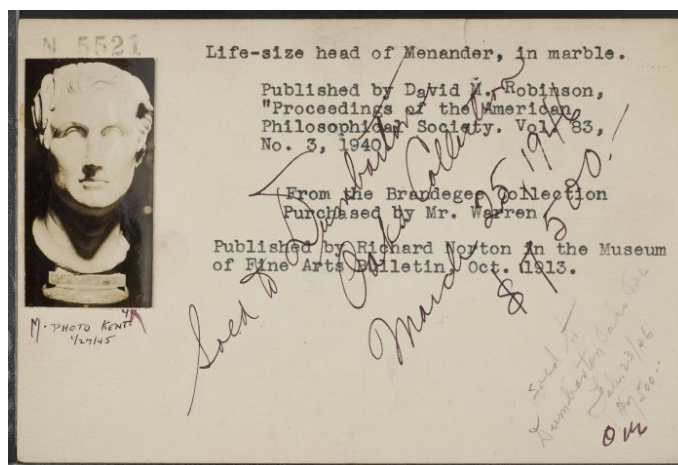 N 5521
Life-size head of Menander, in marble.
Published by David M. Robinson,
"Proceedings of the American
Philosophical Society. Vol. 83,
No. 3, 1940
From the Brandegee Collection
Purchased by Mr. Warren
Published by Richard Norton in the Museum
of Fine Arts Bulletin, Oct. 1913.
Sold to Dumbarton
Oaks Collection
March 25, 1946
$7500.-
M. PHOTO KENT
1/27/45
Sold to
Dumbarton Oaks
Feb. 23/46
$7,500.-